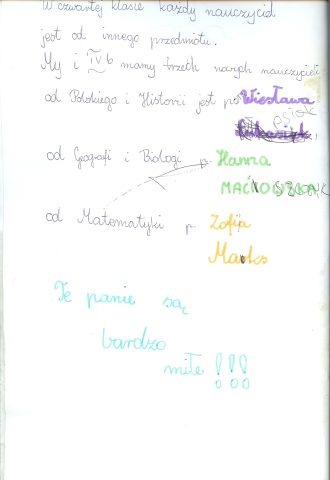 W czwartej klasie każdy nauczyciel
jest od innego przedmiotu.
My i IV b mamy trzech nowych nauczycieli
od Polskiego i Historii jest p. Wiesława
od Geografi i Biologi p. Hanna
od Matematyki p. Zofija
Marks
Te panie są
bardzo
miłe !!!